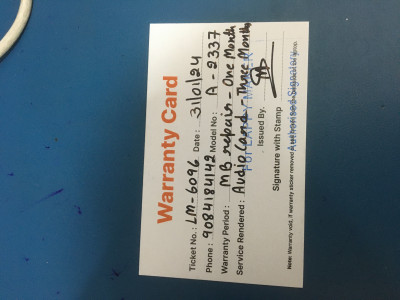 Warranty Card
Ticket No.: LM-6096 Date: 31/01/24
Phone: 9084184142 Model No: A-2337
Warranty Period: MB repair - One Month
Service Rendered: Audio Card - Three Months
Issued By.
Signature with Stamp
Authorised Signatory
Note: Warranty void, if warranty sticker removed